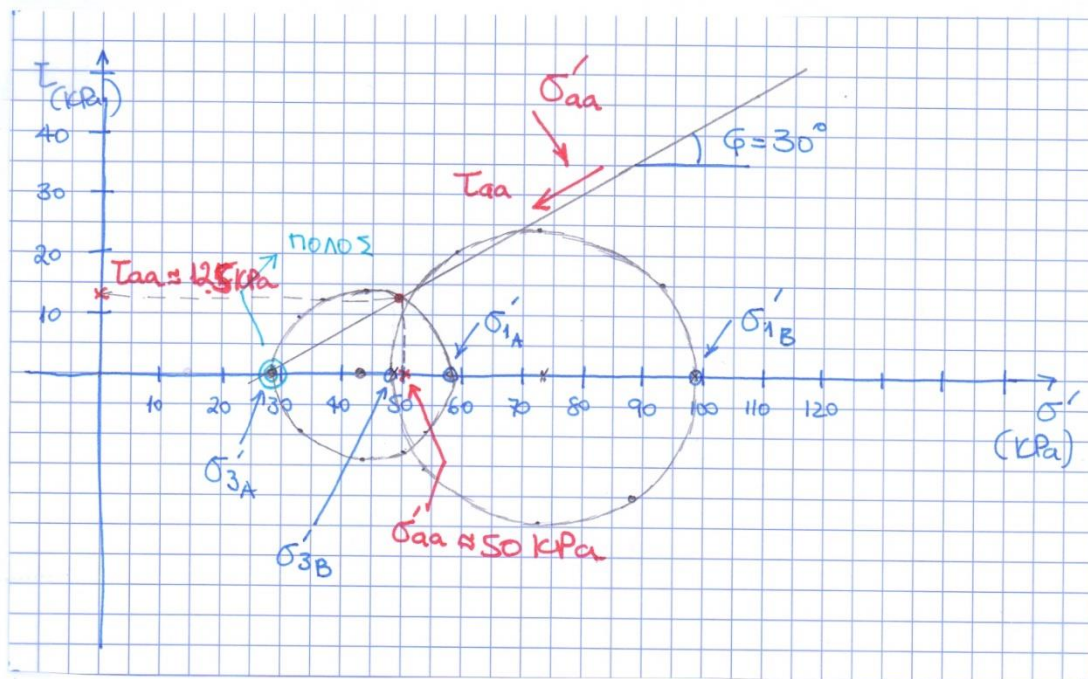 τ
(kPa)
40
30
20
10
σ'aa
τaa
φ=30°
ΠΟΛΟΣ
τaa ≈ 12.5 kPa
σ'1A
σ'1B
10 20 30 40 50 60 70 80 90 100 110 120
σ'
(kPa)
σ'3A
σ'3B
σ'aa ≈ 50 kPa